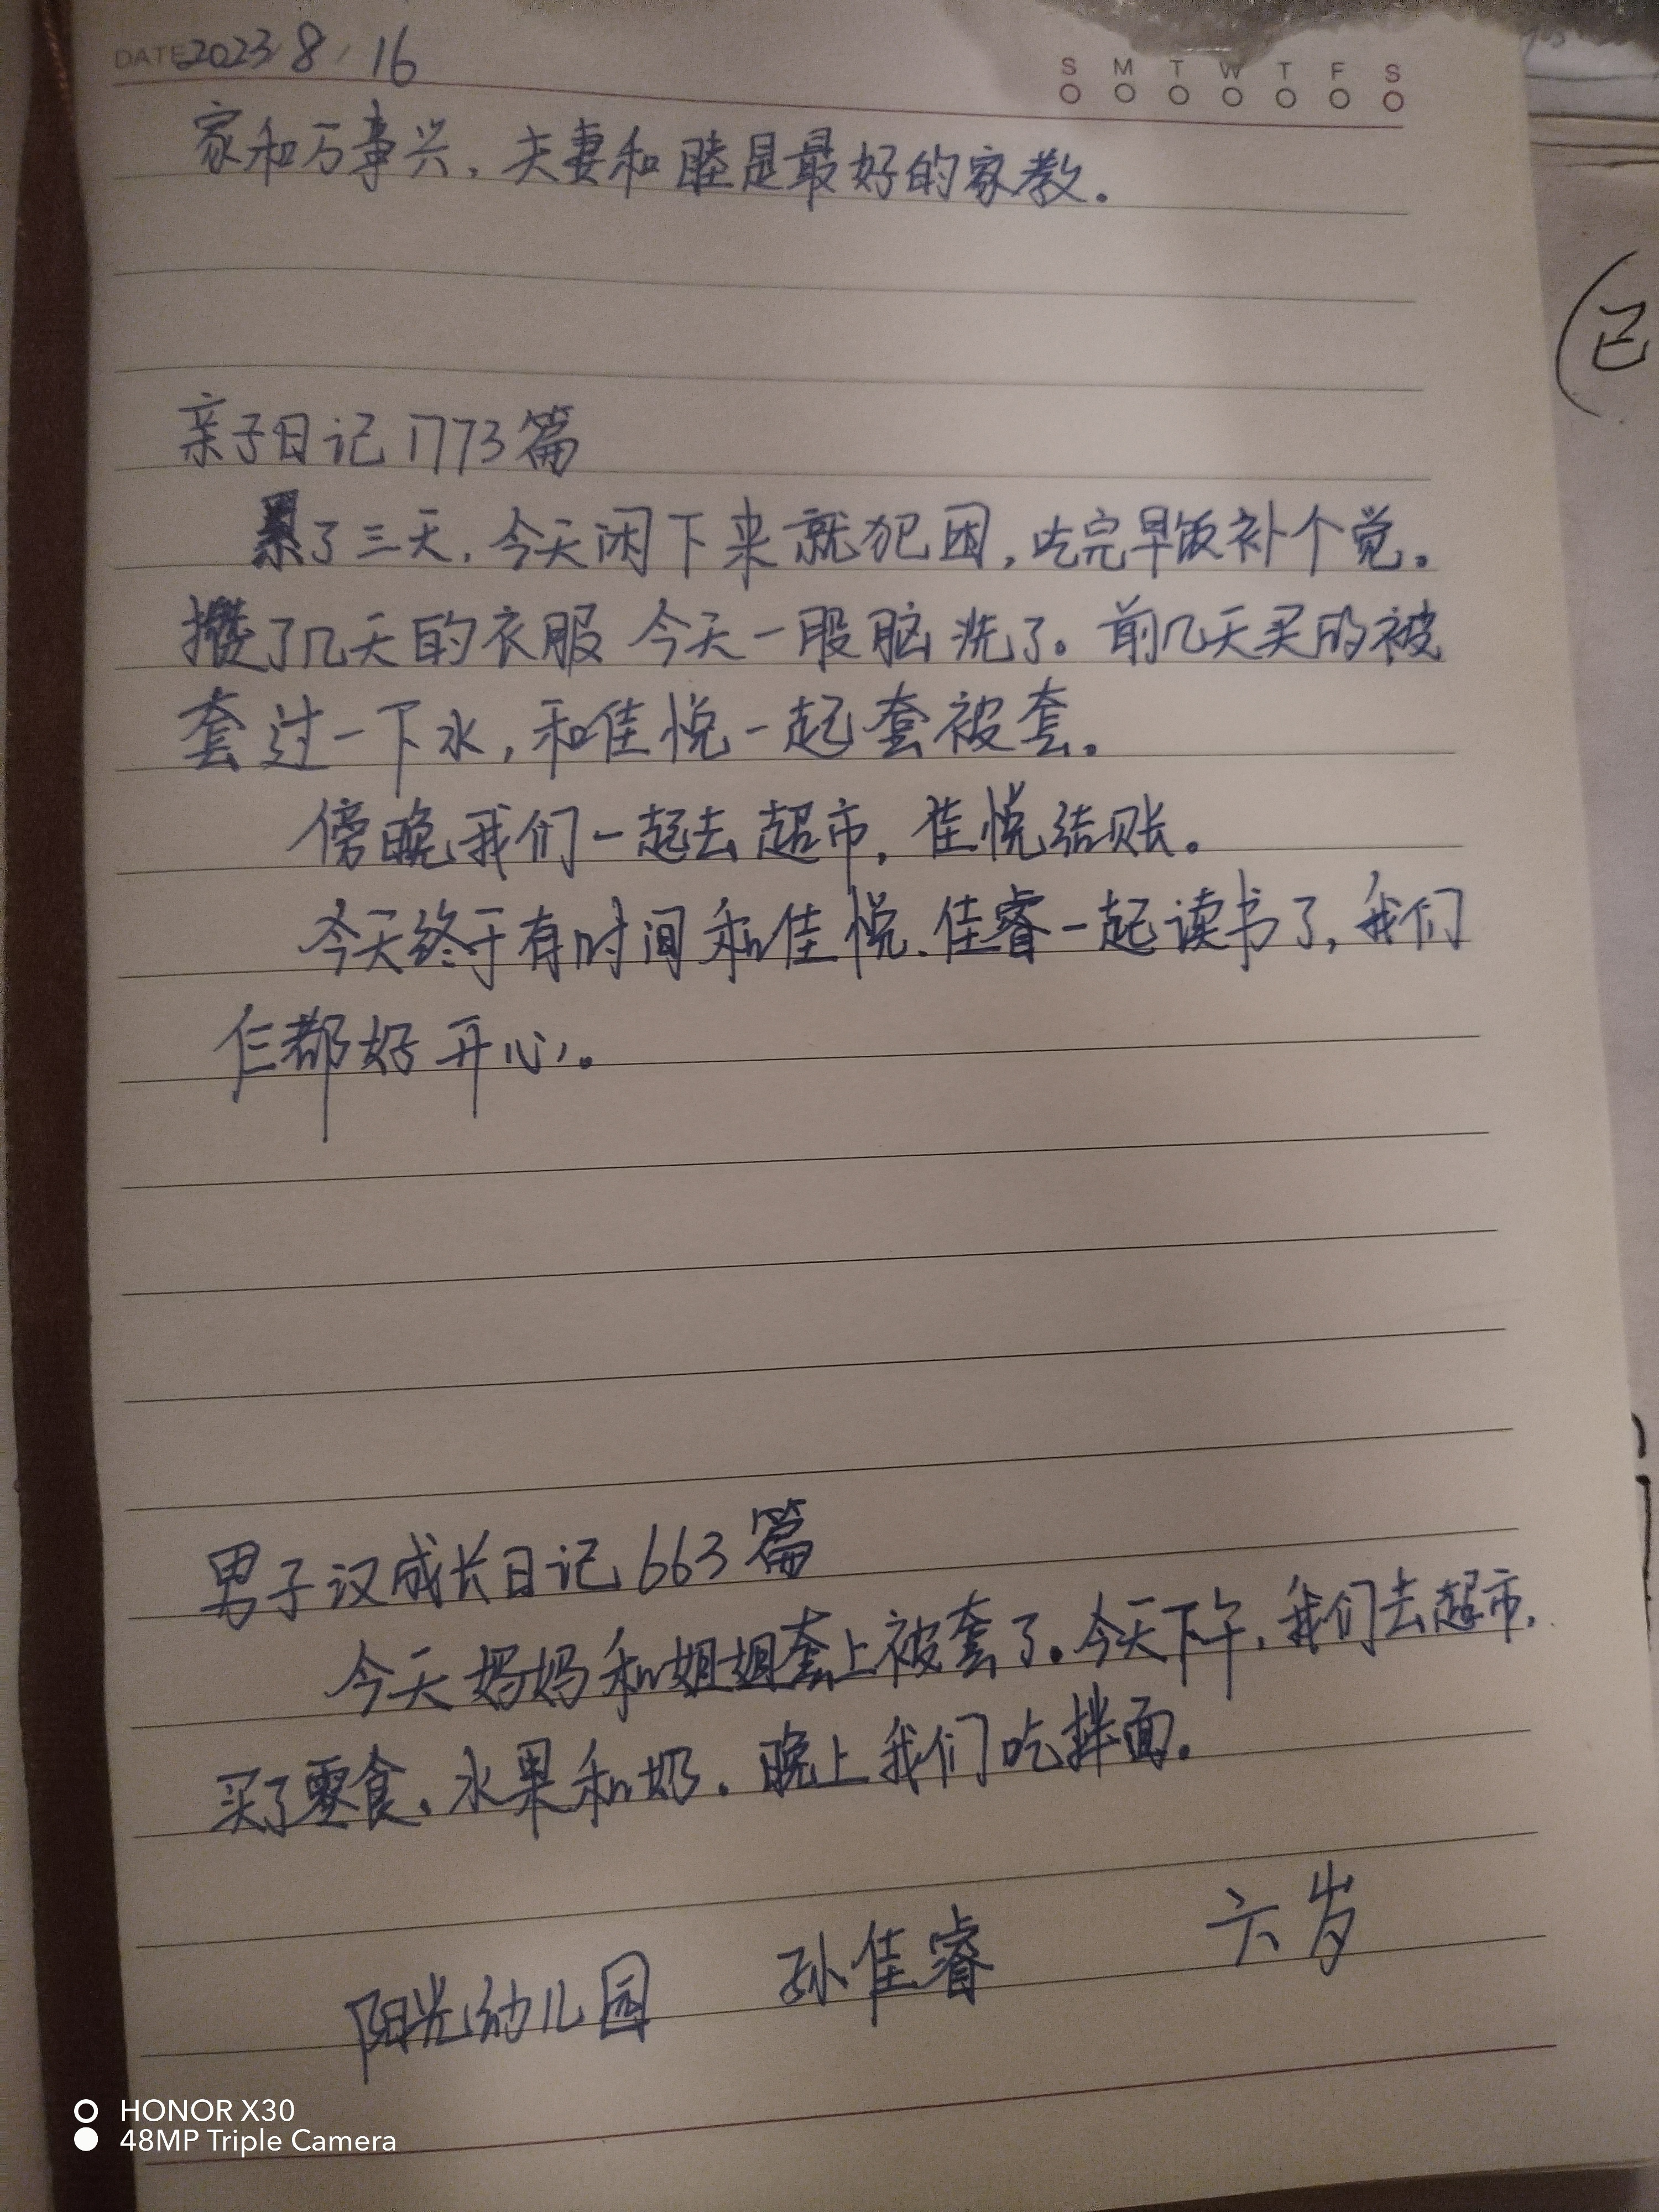 DATE 2023 / 8 / 16
S M T W T F S
家和万事兴，夫妻和睦是最好的家教。
亲子日记1773篇
累了三天，今天闲下来就犯困，吃完早饭补个觉。
攒了几天的衣服 今天一股脑洗了。前几天买的被
套过一下水，和佳悦一起套被套。
傍晚我们一起去超市，佳悦结账。
今天终于有时间和佳悦、佳睿一起读书了，我们
仨都好开心。
男子汉成长日记663篇
今天妈妈和姐姐套上被套了。今天下午，我们去超市，
买了零食、水果和奶。晚上我们吃拌面。
阳光幼儿园 孙佳睿 六岁
HONOR X30
48MP Triple Camera